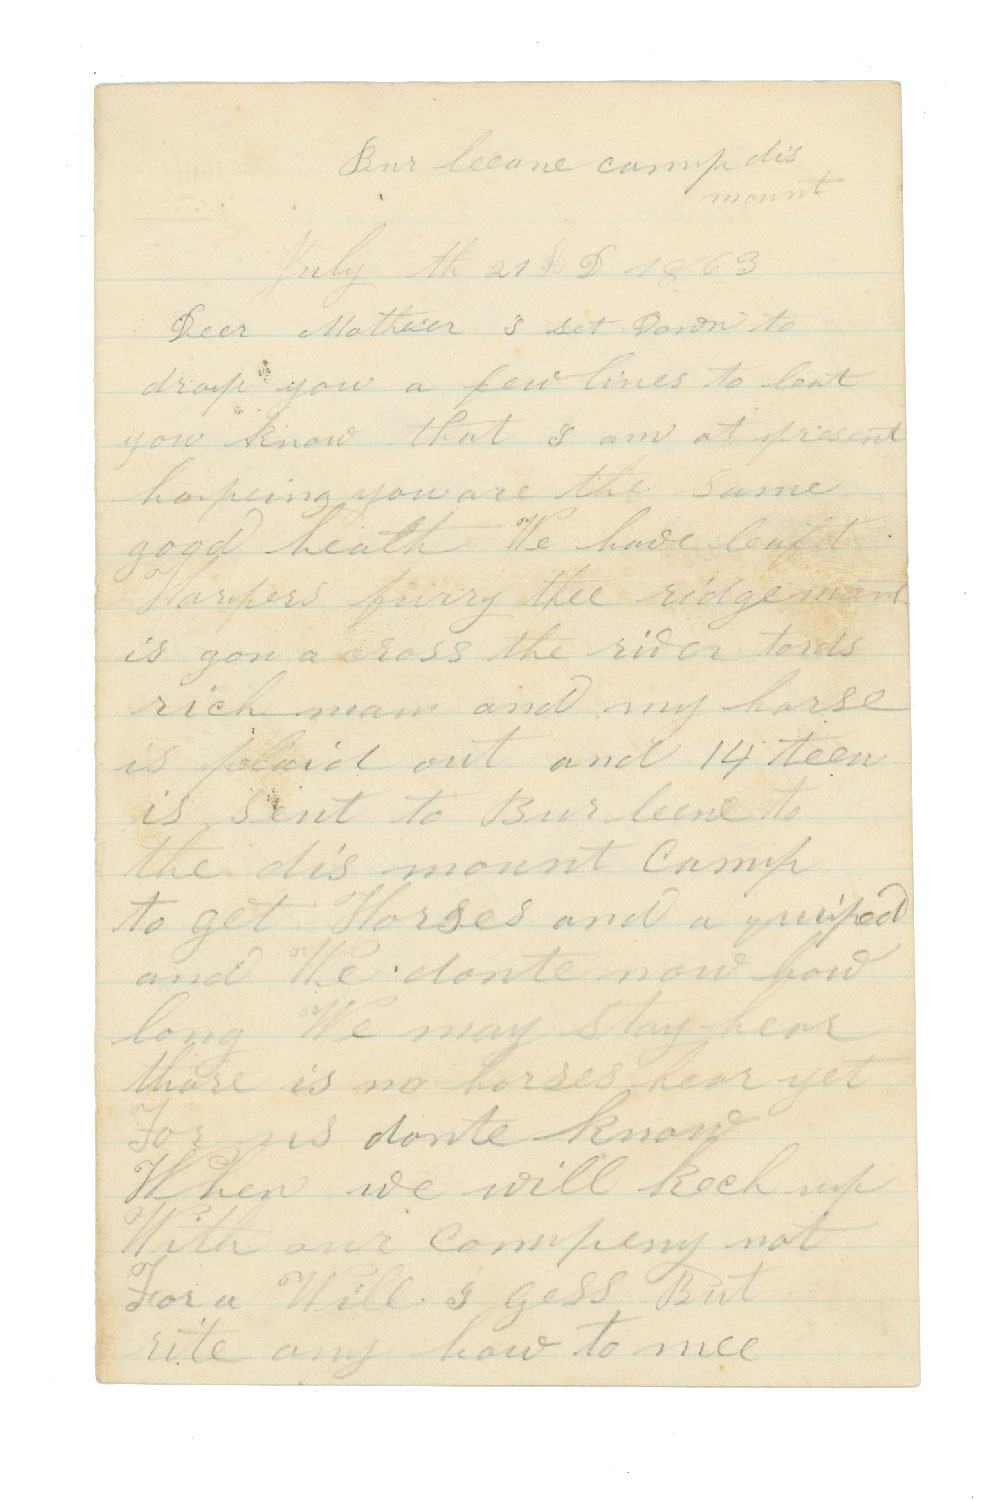 Bur leeane camp dis
mount
July th 21 AD 1863
Deer Mother I set Down to
drop you a few lines to leat
you know that I am at present
hopeing you are the same
good heath We have leaft
Harpers furry thee ridgement
is gon a cross the river tords
rich mam and my horse
is plaid out and 14 teen
is sent to Bur leene to
the dis mount Camp
to get Horses and a quiped
and We donte now how
long We may stay hear
thare is no horses hear yet
For us donte know
When we will kech up
With our compeny not
For a Will I gess But
rite any how to mee